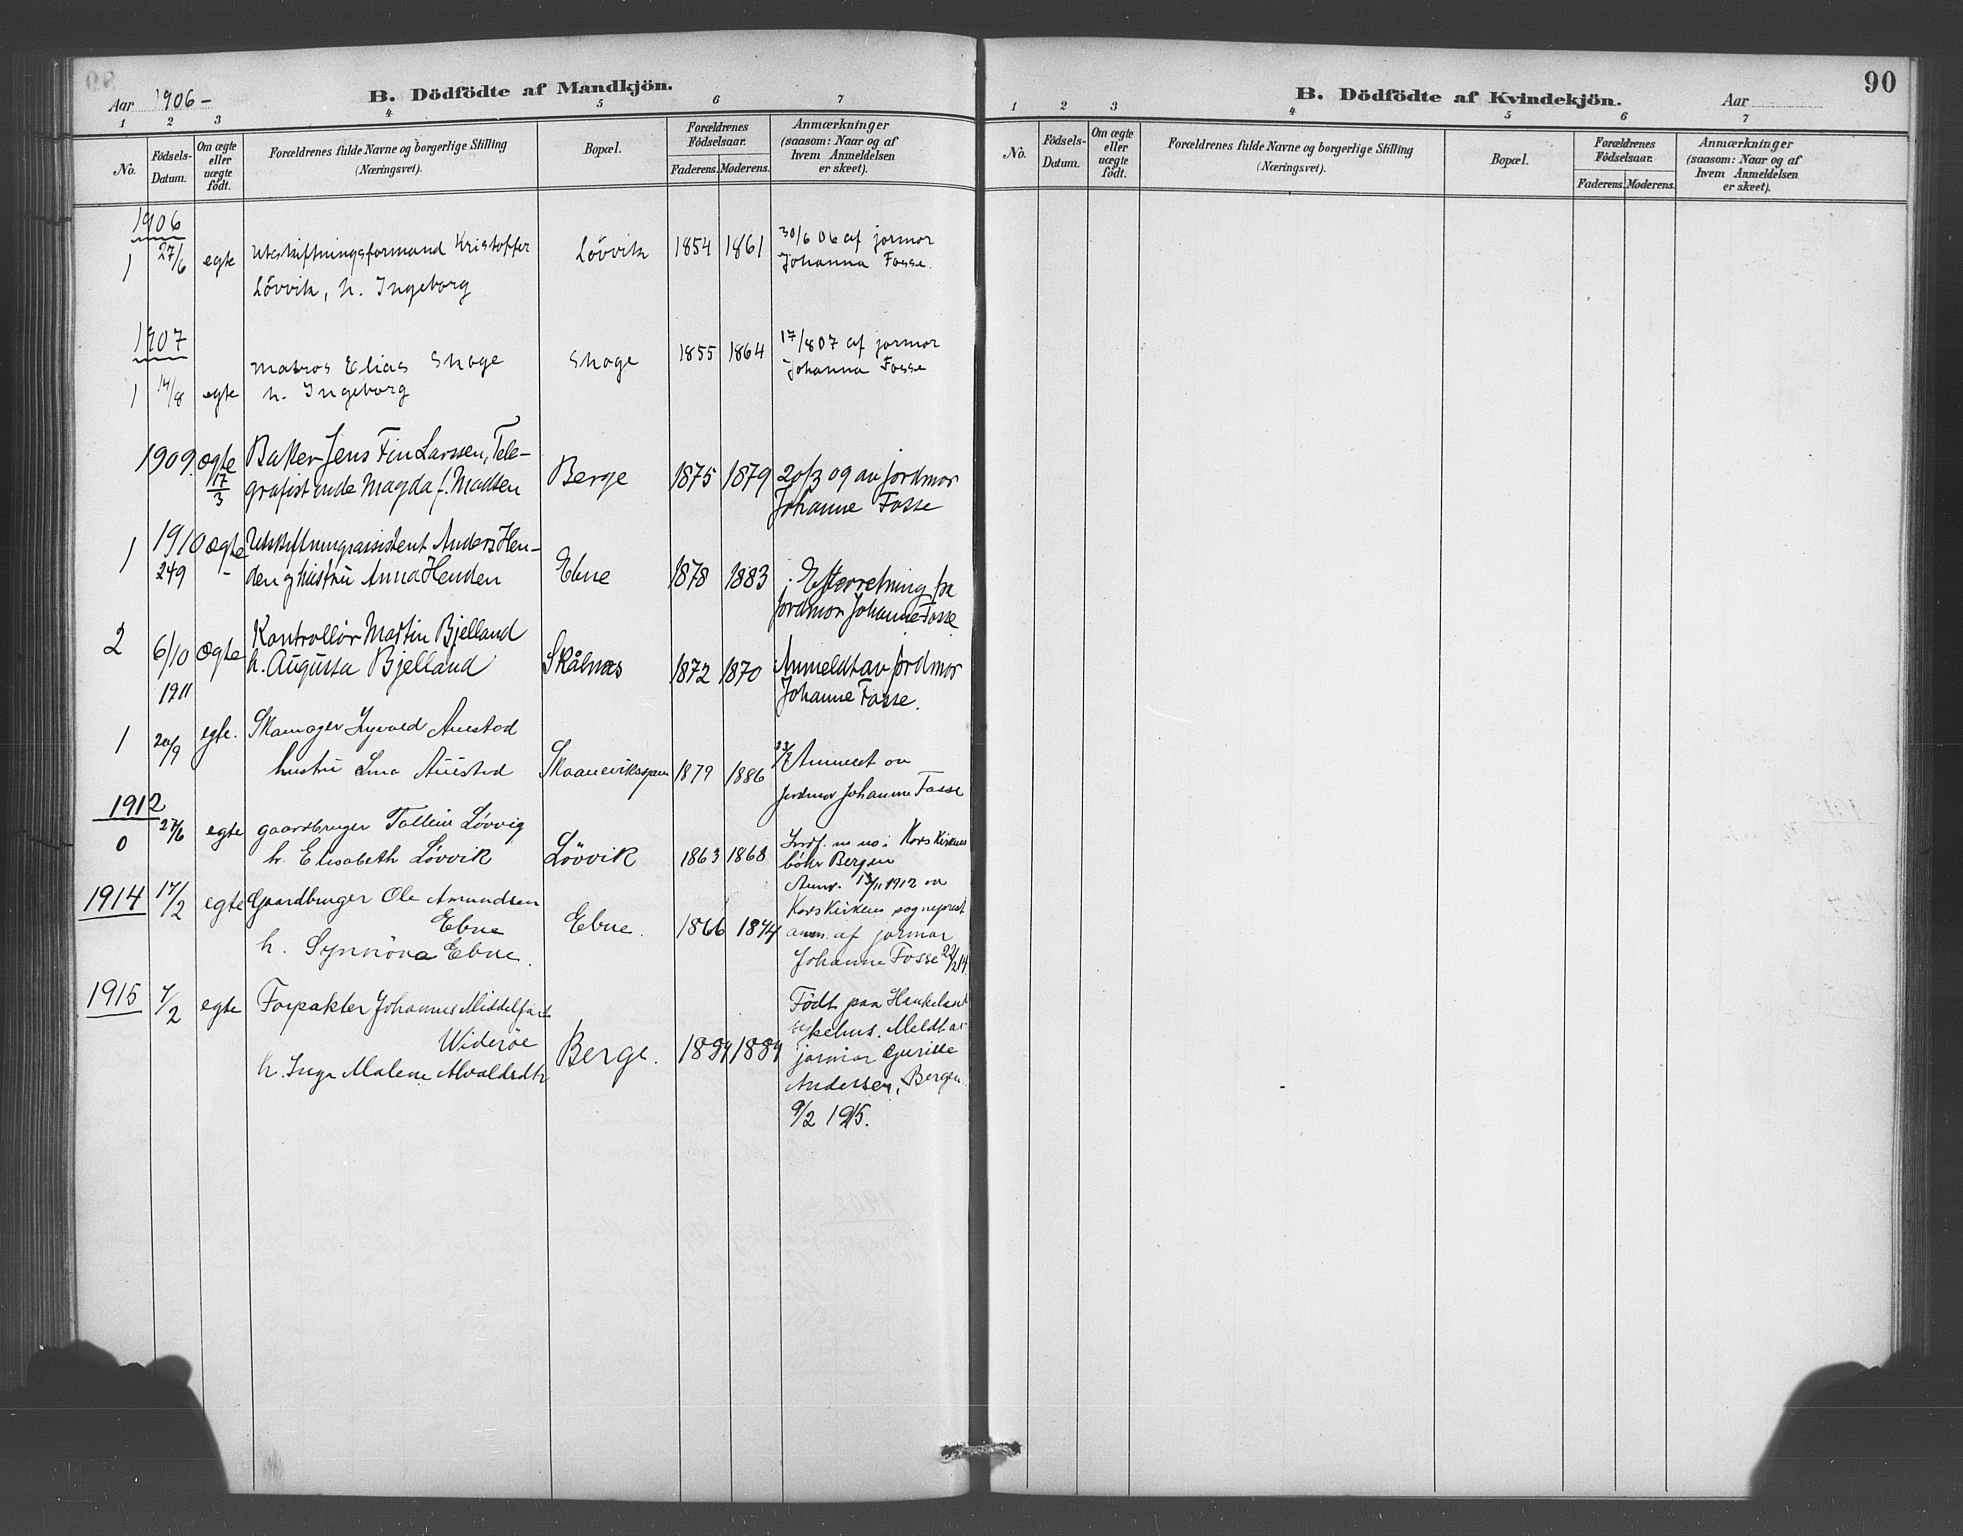 Aar 1906 –
B. Dödfödte af Mandkjön.
1 2 3 4 5 6 7
No.
Födsels-Datum.
Om ægte eller uægte födt.
Forældrenes fulde Navne og borgerlige Stilling (Næringsvei).
Bopæl.
Forældrenes Födselsaar.
Faderens. Moderens.
Anmærkninger (saasom: Naar og af hvem Anmeldelsen er skeet).
1906
1 27/6 egte Utskiftningsformand Kristoffer Lövvik 1854 1861 30/6 06 af jormor
Lövvik, h. Ingeborg Johanna Fosse.
1907
1 14/8 egte Matros Elias Skoge Skoge 1855 1864 17/8 07 af jormor
h. Ingeborg Johanna Fosse
1909. ægte Baker Jens Fin Larssen, Tele-
17/3 grafistinde Magda f. Madsen Berge 1875 1879 20/3 09 av jordmor
Johanne Fosse
1 1910 ægte Utskiftningsassistent Anders Hen-
24/9 – den og hustru Anna Henden Ebne 1878 1883 Efterretning fra
jordmor Johanne Fosse
2 6/10 ægte Kontrollör Martin Bjelland
h. Augusta Bjelland Skålnæs 1872 1870 Anmeldt av jordmor
Johanne Fosse.
1911
1 20/9 egte. Skomager Auestad
hustru Auestad 1879 1886 Anmeldt av
jordmor Johanne Fosse
1912
0 27/6 egte gaardbruger Lövvig
h. Elisabeth Lövvik Lövvik 1863 1868 Kors Kirkens
Bergen
13/11 1912 av
Kors Kirkens sogneprest
1914 17/2 egte Gaardbruger Ole Amundsen
Ebne Ebne. 1866 1874
h. Synnöva Ebne. anm. af jormor
Johanne Fosse 22/2 14
1915 7/2 egte Forpakter Johannes Middelfart
Wideröe Berge. 1889
h. Inga Malene Alvaldsdtr
Födt paa Haukeland
sykehus. Meldt av
jormor
Andersen, Bergen.
9/2 1915.
90
B. Dödfödte af Kvindekjön.
Aar
1 2 3 4 5 6 7
No.
Födsels-Datum.
Om ægte eller uægte födt.
Forældrenes fulde Navne og borgerlige Stilling (Næringsvei).
Bopæl.
Forældrenes Födselsaar.
Faderens. Moderens.
Anmærkninger (saasom: Naar og af hvem Anmeldelsen er skeet).